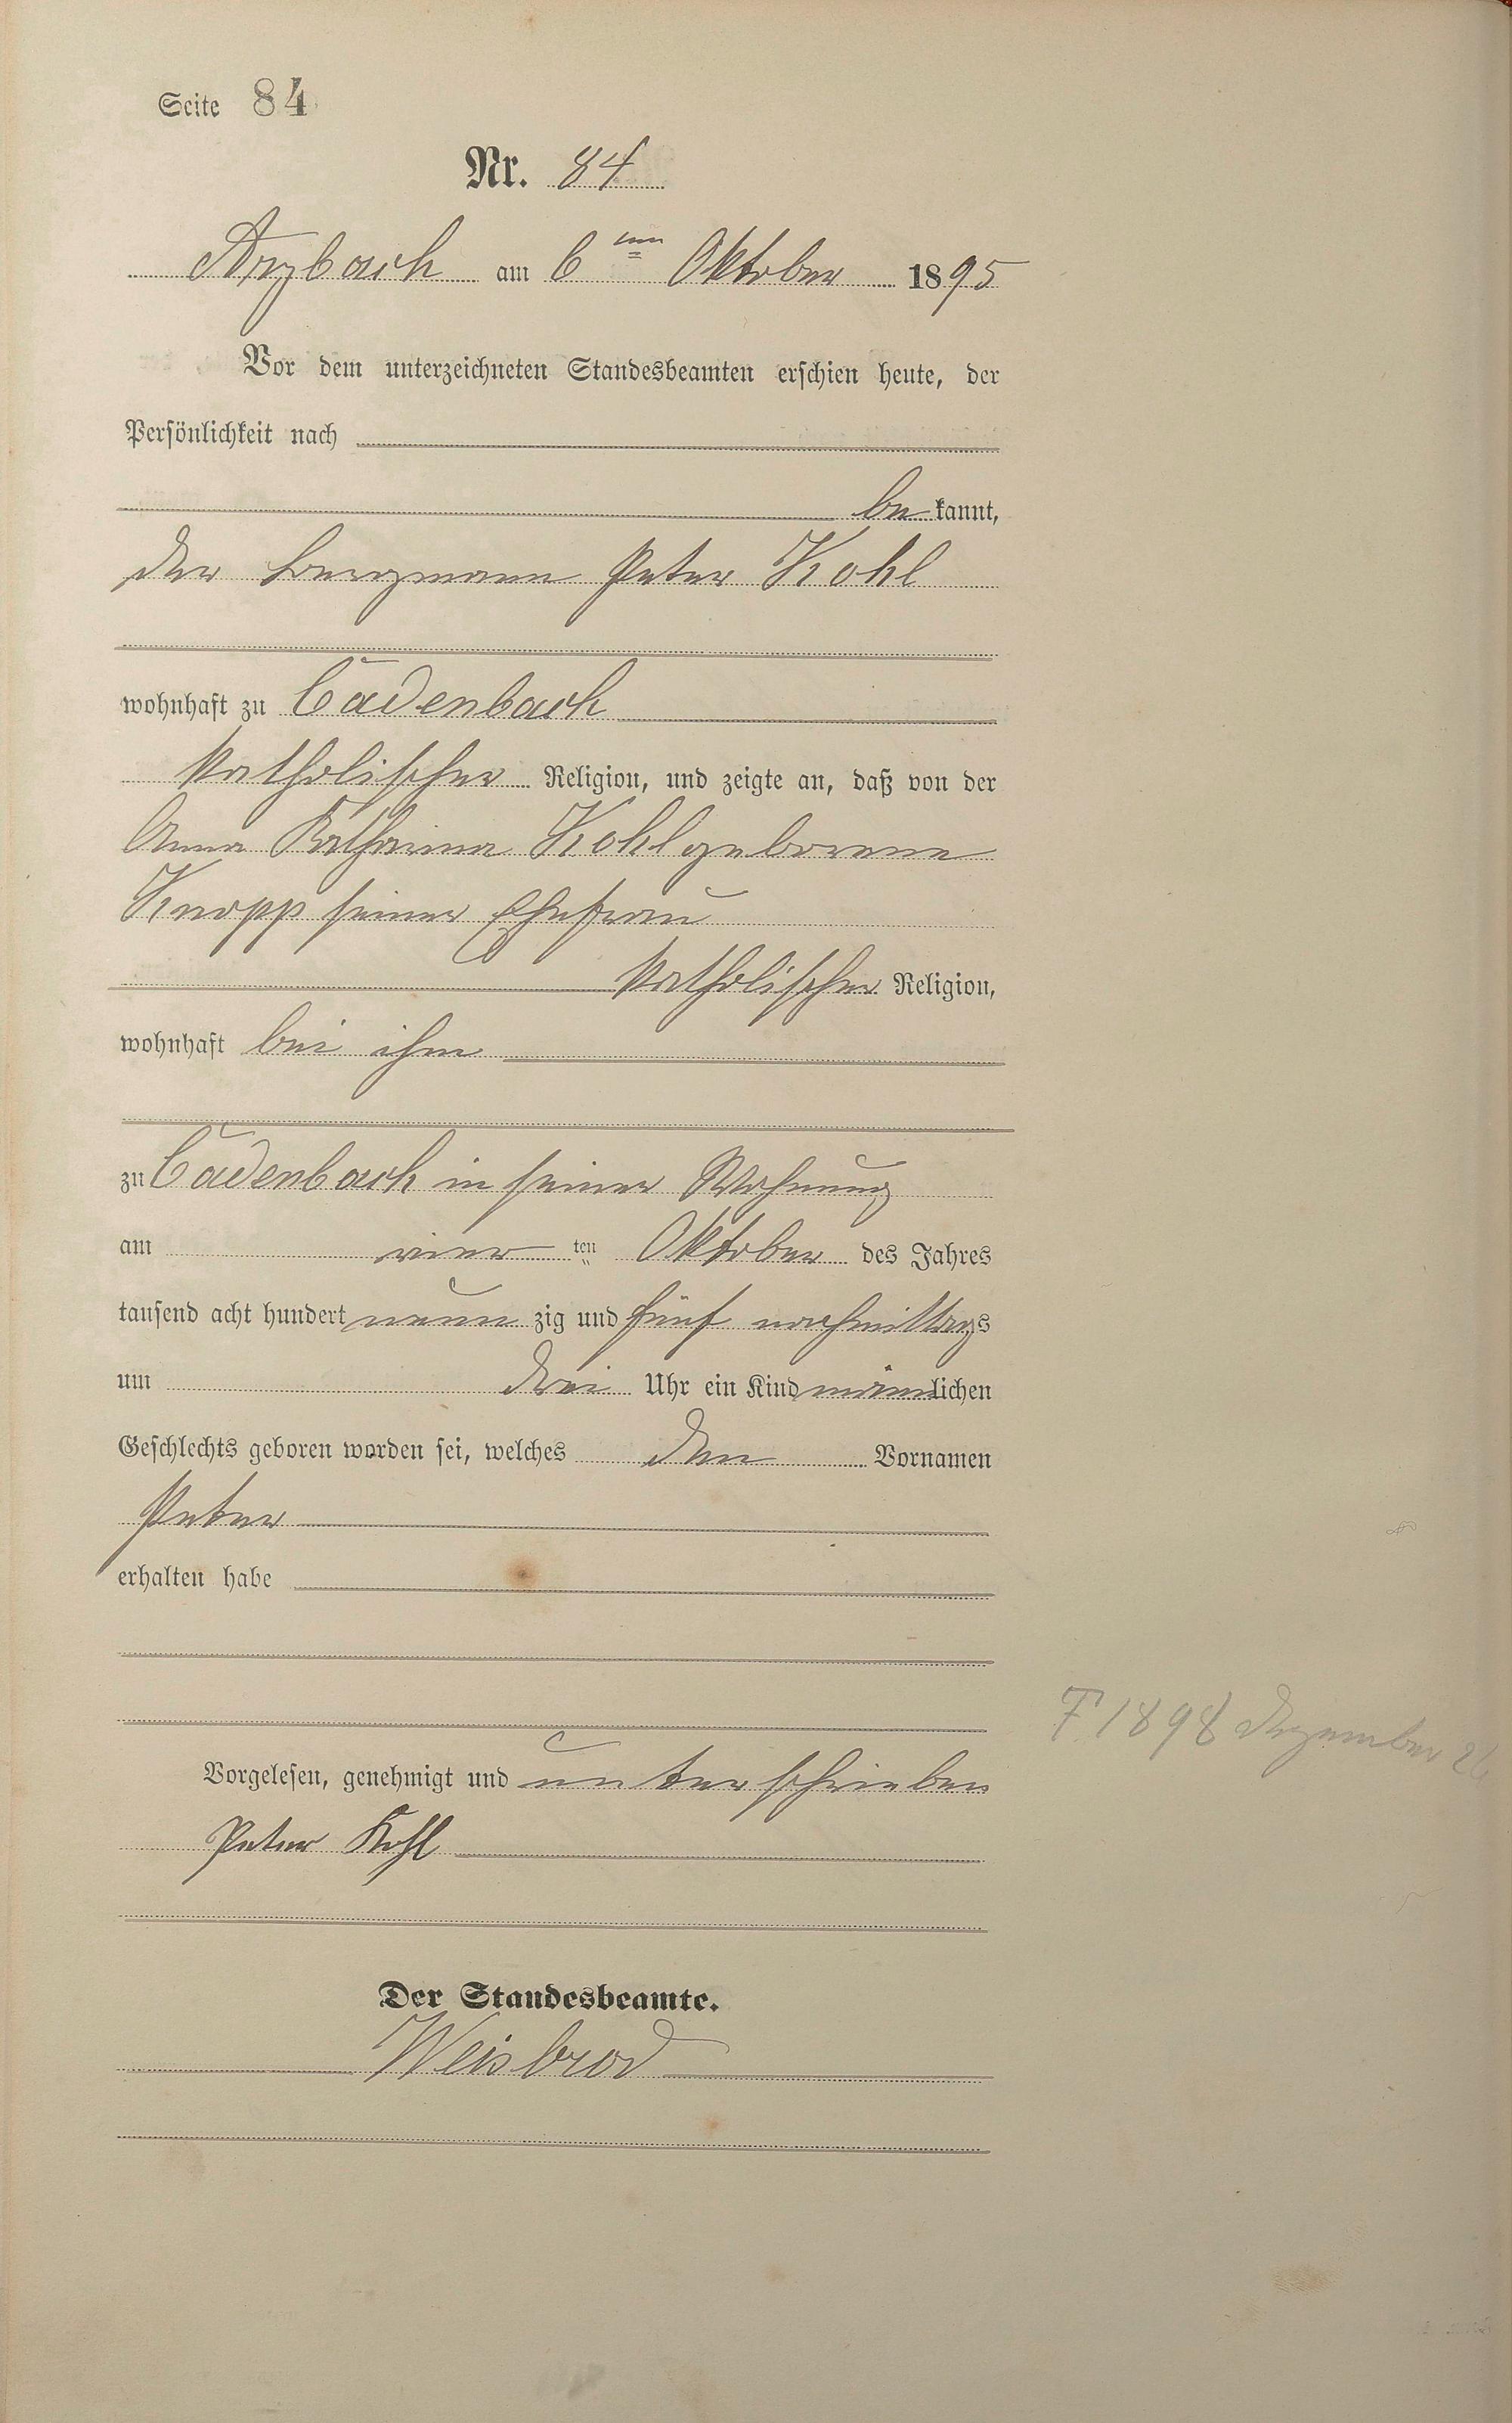 Seite 84
Nr. 84
Arzbach am 6ten Oktober 1895
Vor dem unterzeichneten Standesbeamten erschien heute, der
Persönlichkeit nach
be kannt,
der Bergmann Peter Kohl
wohnhaft zu Cadenbach
katholischer Religion, und zeigte an, daß von der
Anna Katharina Kohl geborene
Knopp seiner Ehefrau
katholischer Religion,
wohnhaft bei ihm
zu Cadenbach in seiner Wohnung
am vier ten Oktober des Jahres
tausend acht hundert neun zig und fünf nachmittags
um drei Uhr ein Kind männlichen
Geschlechts geboren worden sei, welches den Vornamen
Peter
erhalten habe
F 1898 Dezember
Vorgelesen, genehmigt und unterschrieben
Peter Kohl
Der Standesbeamte.
Weisbrod